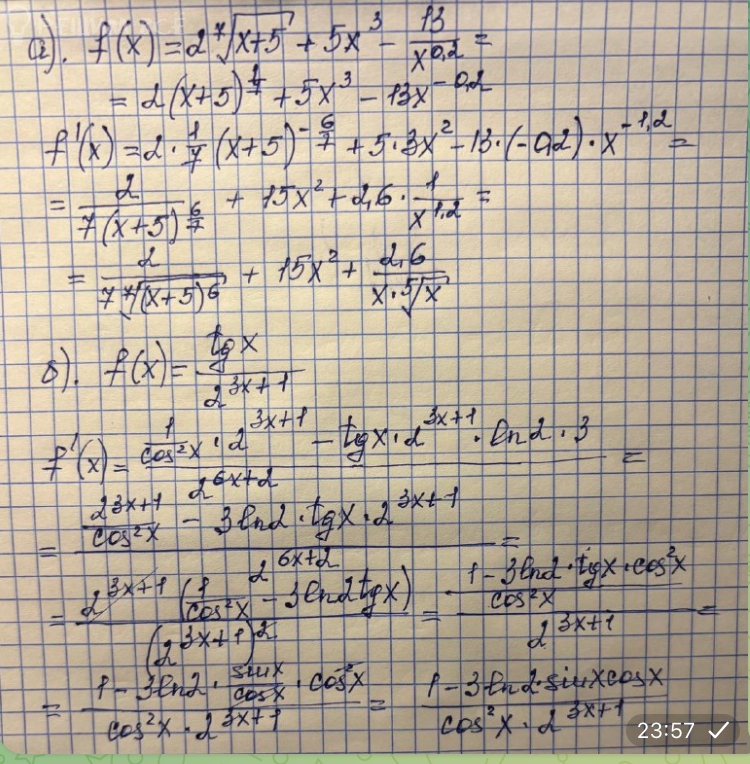 а). f(x) = 2⁷√(x+5) + 5x³ − 13/x^0,2 =
= 2(x+5)^(1/7) + 5x³ − 13x^(−0,2)
f'(x) = 2·1/7(x+5)^(−6/7) + 5·3x² − 13·(−0,2)·x^(−1,2) =
= 2/(7(x+5)^(6/7)) + 15x² + 2,6·1/x^1,2 =
= 2/(7 ⁷√(x+5)⁶) + 15x² + 2,6/(x·⁵√x)
б). f(x) = tgx/2^(3x+1)
f'(x) = (1/cos²x · 2^(3x+1) − tgx·2^(3x+1)·ln2·3)/2^(6x+2) =
= (2^(3x+1)/cos²x − 3ln2·tgx·2^(3x+1))/2^(6x+2) =
= 2^(3x+1)(1/cos²x − 3ln2tgx)/(2^(3x+1))² = ((1−3ln2·tgx·cos²x)/cos²x)/2^(3x+1) =
= (1−3ln2·sinx/cosx·cos²x)/(cos²x·2^(3x+1)) = (1−3ln2·sinxcosx)/(cos²x·2^(3x+1))
23:57 ✓